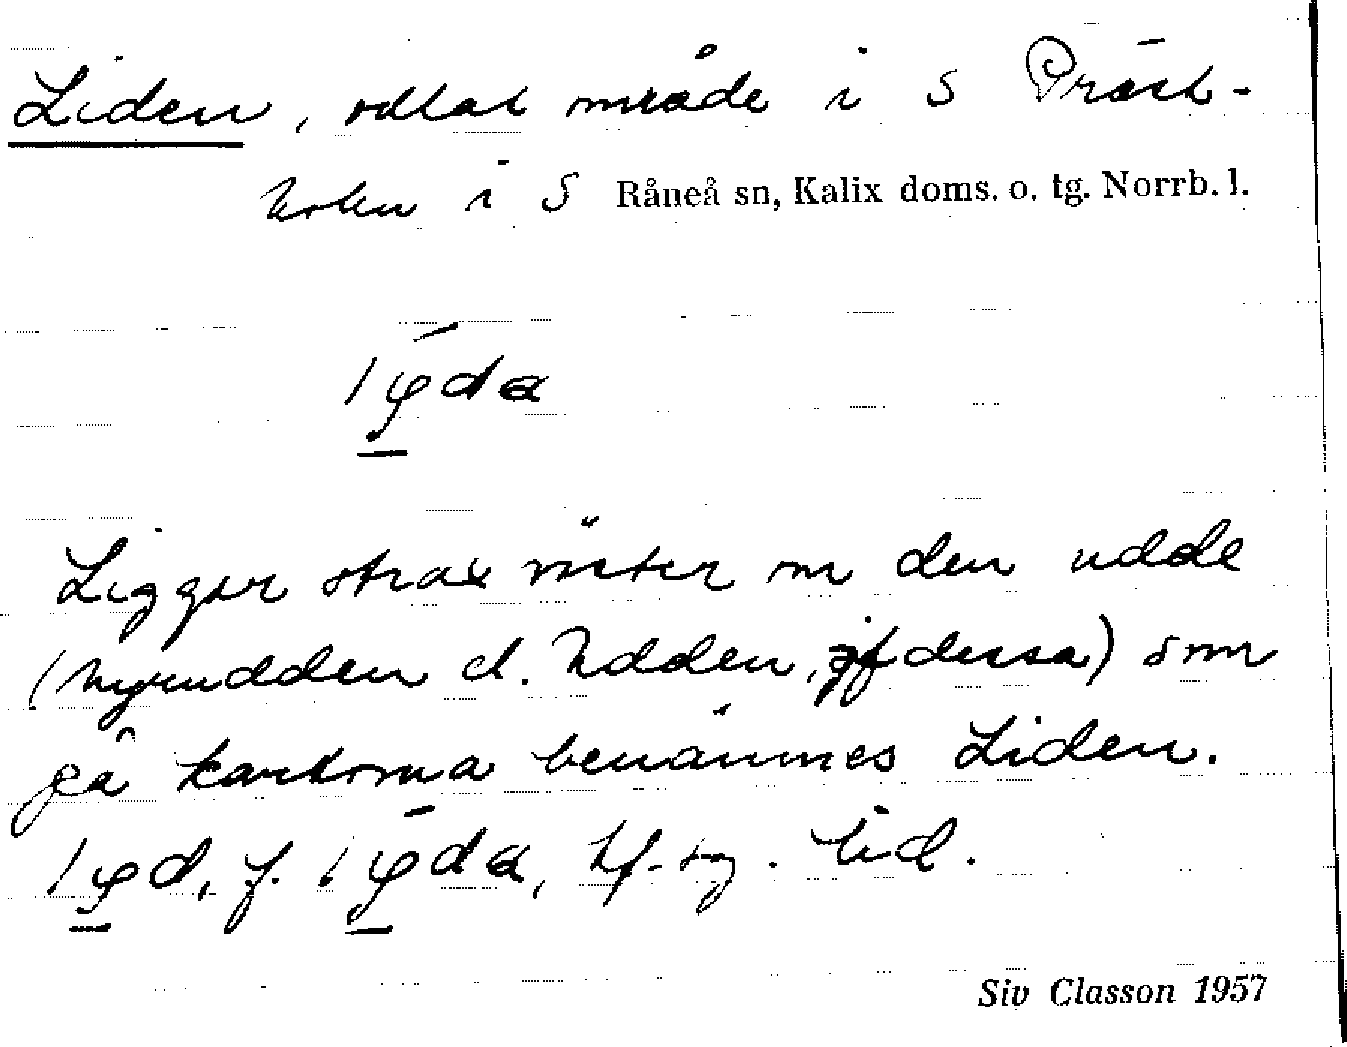 Liden, odlat område i S Präst-
holm i S Råneå sn, Kalix doms. o. tg. Norrb. l.
Ligger strax väster om den udde
(Nyrudden el. Udden, jf dessa) som
på kartorna benämnes Liden.
f. lid.
Siv Classon 1957